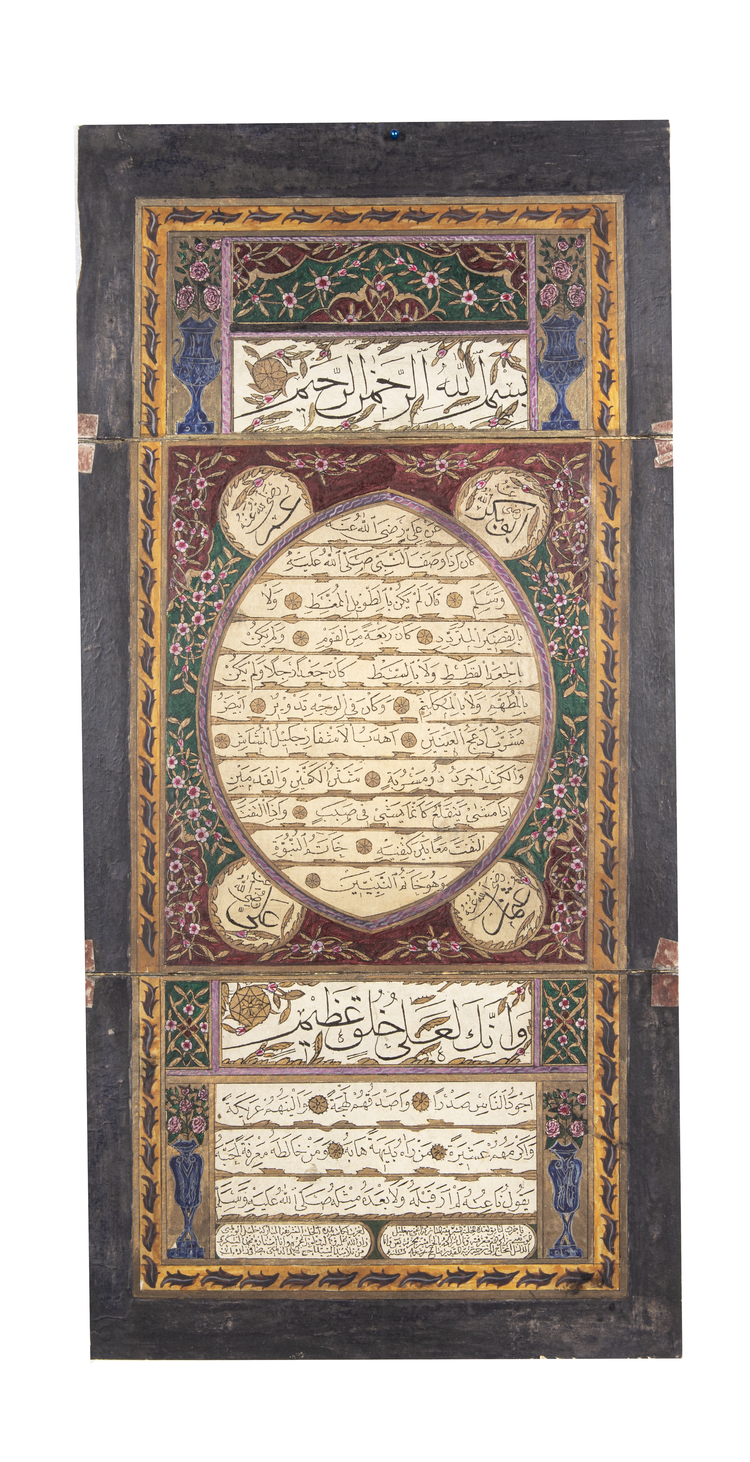 بسم الله الرحمن الرحيم
ابو بكر رضي الله عنه
عمر رضي الله عنه
عن علي رضي الله عنه
كان اذا وصف النبي صلى الله عليه
وسلم قال لم يكن بالطويل الممغط ولا
بالقصير المتردد كان ربعة من القوم ولم يكن
بالجعد القطط ولا بالسبط كان جعدا رجلا ولم يكن
بالمطهم ولا بالمكلثم وكان في الوجه تدوير ابيض
مشرب ادعج العينين اهدب الاشفار جليل المشاش
والكتد اجرد ذو مسربة شثن الكفين والقدمين
اذا مشى يتقلع كانما يمشي في صبب واذا التفت
التفت معا بين كتفيه خاتم النبوة
وهو خاتم النبيين
عثمان رضي الله عنه
علي رضي الله
وانك لعلى خلق عظيم
اجود الناس صدرا واصدقهم لهجة والينهم عريكة
واكرمهم عشيرة من راه بديهة هابه ومن خالطه معرفة احبه
يقول ناعته لم ار قبله ولا بعده مثله صلى الله عليه وسلم